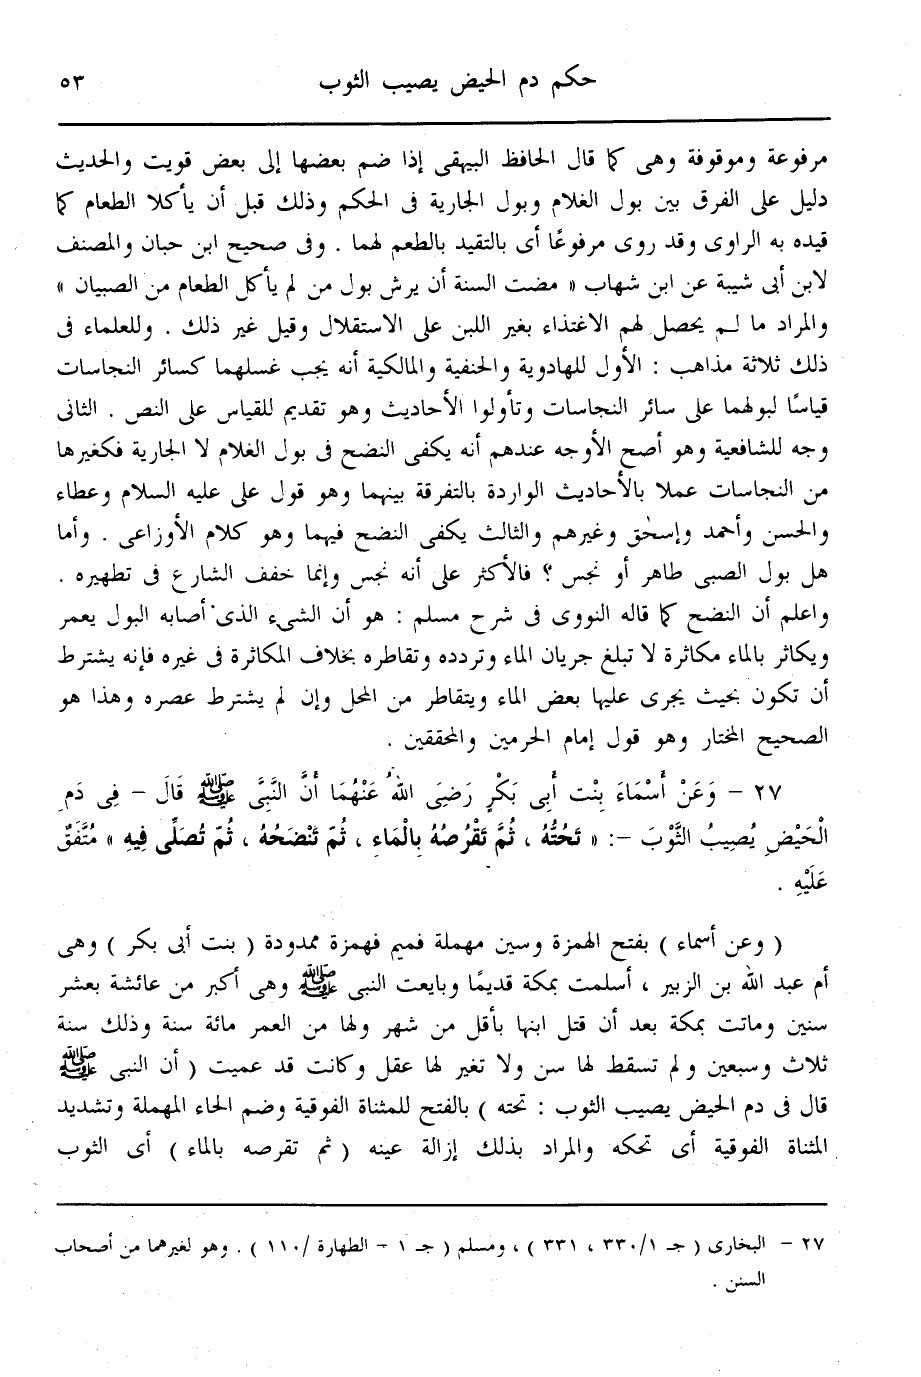 حكم دم الحيض يصيب الثوب ٥٣
مرفوعة وموقوفة وهى كما قال الحافظ البيهقى إذا ضم بعضها إلى بعض قويت والحديث
دليل على الفرق بين بول الغلام وبول الجارية فى الحكم وذلك قبل أن يأكلا الطعام كما
قيده به الراوى وقد روى مرفوعًا أى بالتقيد بالطعم لهما . وفى صحيح ابن حبان والمصنف
لابن أبى شيبة عن ابن شهاب « مضت السنة أن يرش بول من لم يأكل الطعام من الصبيان »
والمراد ما لـم يحصل لهم الاغتذاء بغير اللبن على الاستقلال وقيل غير ذلك . وللعلماء فى
ذلك ثلاثة مذاهب : الأول للهادوية والحنفية والمالكية أنه يجب غسلهما كسائر النجاسات
قياسًا لبولهما على سائر النجاسات وتأولوا الأحاديث وهو تقديم للقياس على النص . الثانى
وجه للشافعية وهو أصح الأوجه عندهم أنه يكفى النضح فى بول الغلام لا الجارية فكغيرها
من النجاسات عملا بالأحاديث الواردة بالتفرقة بينهما وهو قول على عليه السلام وعطاء
والحسن وأحمد وإسحٰق وغيرهم والثالث يكفى النضح فيهما وهو كلام الأوزاعى . وأما
هل بول الصبى طاهر أو نجس ؟ فالأكثر على أنه نجس وإنما خفف الشارع فى تطهيره .
واعلم أن النضح كما قاله النووى فى شرح مسلم : هو أن الشىء الذى أصابه البول يغمر
ويكاثر بالماء مكاثرة لا تبلغ جريان الماء وتردده وتقاطره بخلاف المكاثرة فى غيره فإنه يشترط
أن تكون بحيث يجرى عليها بعض الماء ويتقاطر من المحل وإن لم يشترط عصره وهذا هو
الصحيح المختار وهو قول إمام الحرمين والمحققين .
٢٧ - وَعَنْ أَسْمَاءَ بِنْت أَبِى بَكْرٍ رَضِىَ اللهُ عَنْهُمَا أَنَّ النَّبِىَّ ﷺ قَالَ - فِى دَمِ
الْحَيْضِ يُصِيبُ الثَّوْبَ -: « تَحُتُّهُ ، ثُمَّ تَقْرُصُهُ بِالْمَاءِ ، ثُمّ تَنْضَحُهُ ، ثُمّ تُصَلِّى فِيهِ » مُتَّفَقٌ
عَلَيْهِ .
( وعن أسماء ) بفتح الهمزة وسين مهملة فميم فهمزة ممدودة ( بنت أبى بكر ) وهى
أم عبد الله بن الزبير ، أسلمت بمكة قديمًا وبايعت النبى ﷺ وهى أكبر من عائشة بعشر
سنين وماتت بمكة بعد أن قتل ابنها بأقل من شهر ولها من العمر مائة سنة وذلك سنة
ثلاث وسبعين ولم تسقط لها سن ولا تغير لها عقل وكانت قد عميت ( أن النبى ﷺ
قال فى دم الحيض يصيب الثوب : تحته ) بالفتح للمثناة الفوقية وضم الحاء المهملة وتشديد
المثناة الفوقية أى تحكه والمراد بذلك إزالة عينه ( ثم تقرصه بالماء ) أى الثوب
٢٧ - البخارى ( جـ ٣٣٠/١ ، ٣٣١ ) ، ومسلم ( جـ ١ - الطهارة /١١٠ ) . وهو لغيرهما من أصحاب
السنن .